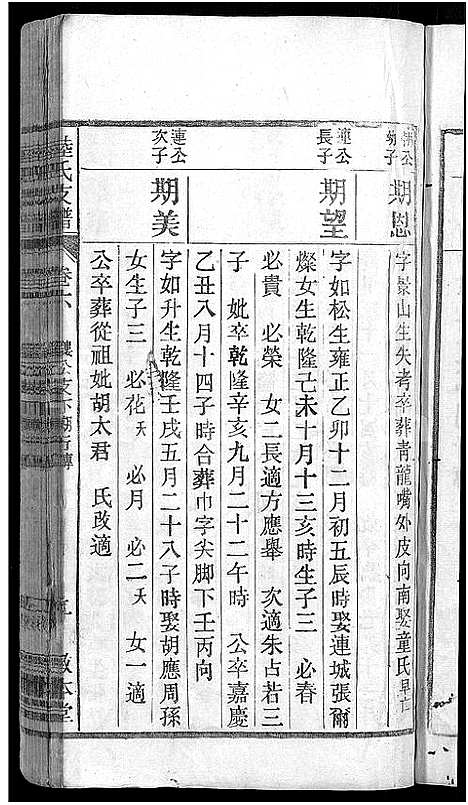 期恩
字景山生失考卒葬青龍嘴外皮向南娶童氏早亡
連公
長子
期望
字如松生雍正乙卯十二月初五辰時娶連城張爾
燦女生乾隆己未十月十三亥時生子三 必春
必貴 必榮 女二長適方應舉 次適朱占若三
子 妣卒乾隆辛亥九月二十二午時 公卒嘉慶
乙丑八月十四子時合葬巾字尖脚下壬丙向
連公
次子
期美
字如升生乾隆壬戌五月二十八子時娶胡應周孫
女生子三 必花夭 必月 必二夭 女一適
公卒葬從祖妣胡太君 氏改適
陸氏支譜
卷六
敬本堂